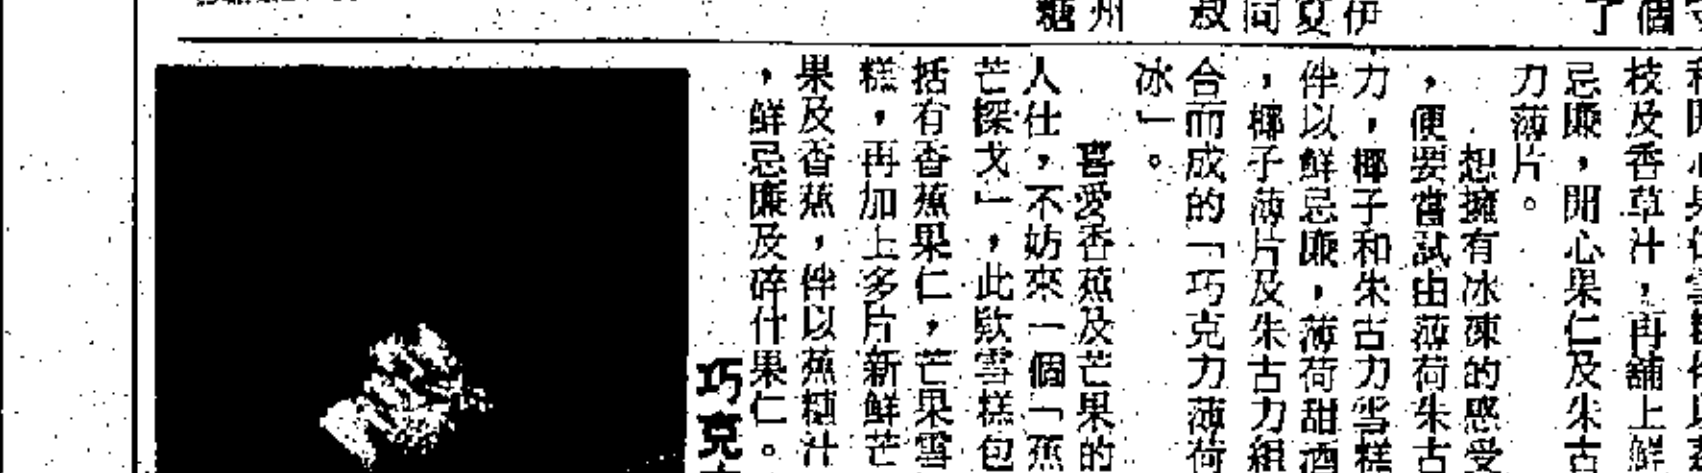 個
了
伊
夏
同
叔
州
糖
枝及香草汁，再舖上鮮
忌廉，開心果仁及朱古
力薄片。
想擁有冰凍的感受
，便要嘗試由薄荷朱古
力，椰子和朱古力雪糕
伴以鮮忌廉，薄荷甜酒
，椰子薄片及朱古力組
合而成的「巧克力薄荷
冰」。
喜愛香蕉及芒果的
人仕，不妨來一個「蕉
芒探戈」，此款雪糕包
括有香蕉果仁，芒果雪
糕，再加上多片新鮮芒
果及香蕉，伴以蕉糖汁
，鮮忌廉及碎什果仁。
巧克